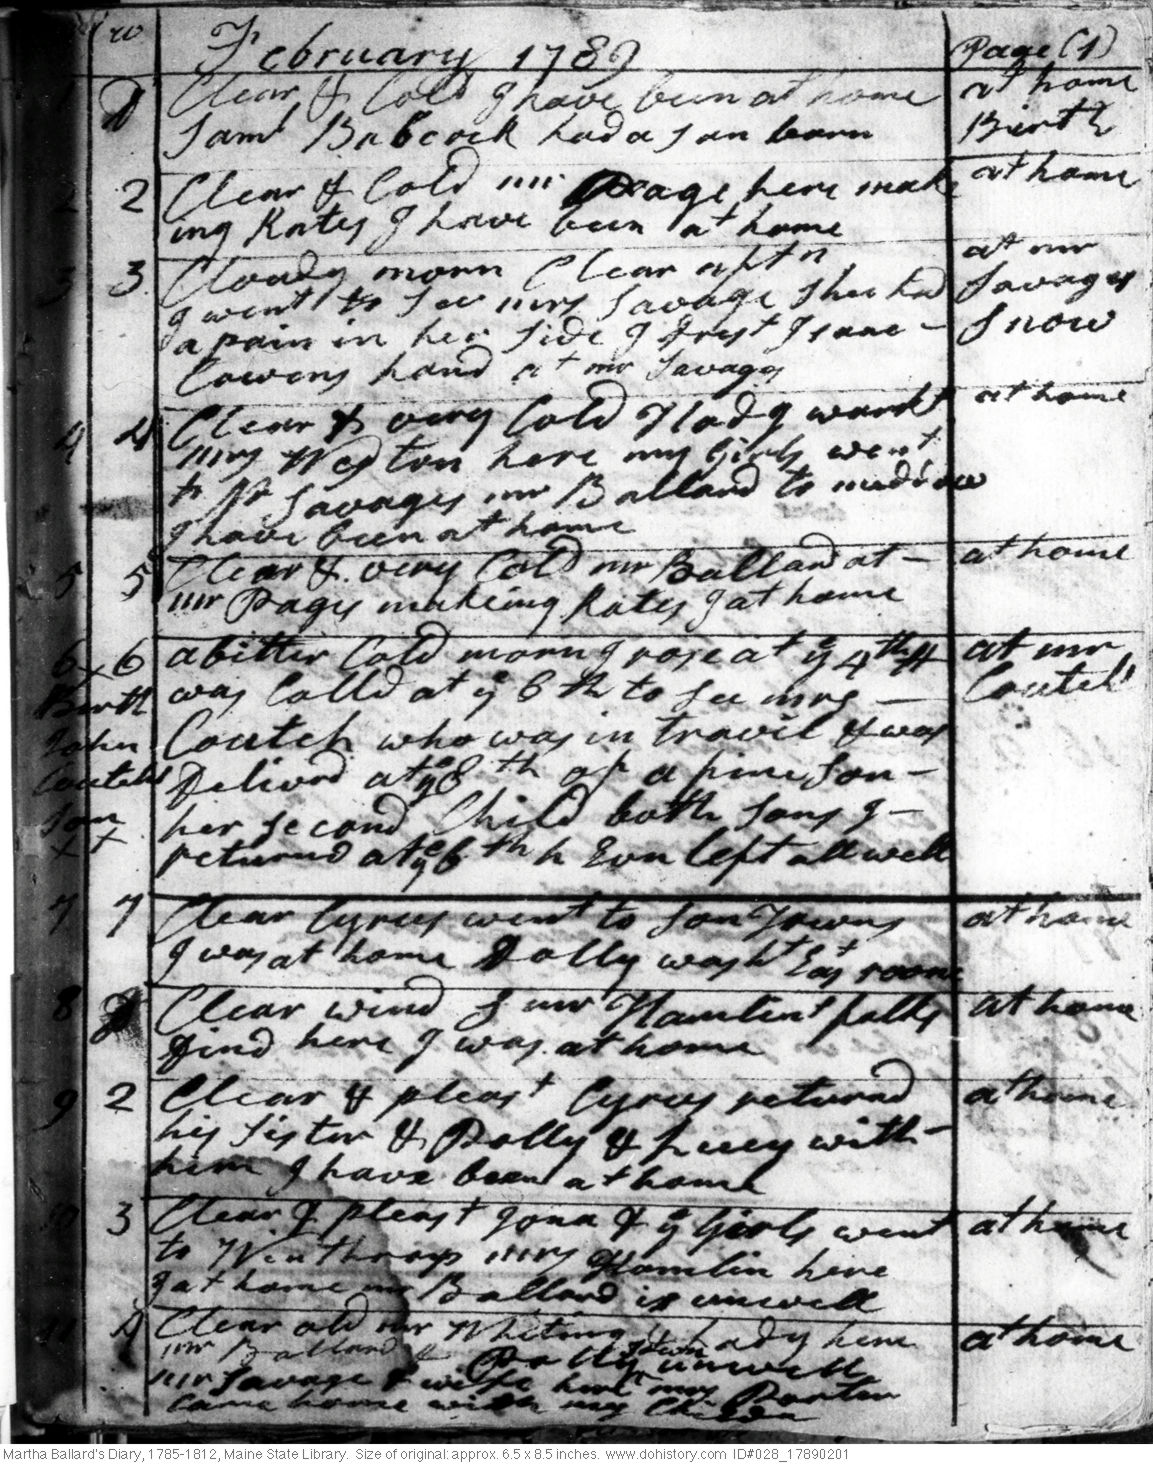 w February 1789 Page (1)
1 D Clear & Cold I have been at home at home
Saml Babcock had a son born Birth
2 2 Clear & Cold mr Page here mak at home
ing Kates I have been at home
3 3 Cloudy morn Clear aftn at mr
I went to See mrs Savage Shee had Savages
a pain in her Side I drest Isaac - Snow
Cowens hand at mr Savages
4 4 Clear & very Cold I washt at home
mrs Weston here my Girls went
to Mr Savages mr Ballard to
I have been at home
5 5 Clear & very Cold mr Ballard at - at home
mr Pages making Kates I at home
6 x 6 a bitter Cold morn I rose at ye 4th h at mr
Birth was Calld at ye 6th to See mrs - Coutch
John Coutch who was in travil & was
Coutchs Deliverd at ye 8th of a fine Son -
Son her Second Child both Sons I -
x x returnd at ye 6th h Evn left all well
7 7 Clear Cyrus went to Son Towns at home
I was at home Dolly washt East room
8 D Clear wind S mr Hamlins folks at home
Dind here I was at home
9 2 Clear & pleast Cyrus returnd at home
his Sister & Dolly & Lucy with -
him I have been at home
10 3 Clear & pleast Jona & ye Girls went at home
to Winthrop mrs Hamlin here
I at home mr Ballard is unwell
11 4 Clear old mr Whiting & Lady here at home
mr Ballard & Dolly unwell
mr Savage & wife here mrs Porter
came home with my Childn
Martha Ballard's Diary, 1785-1812, Maine State Library. Size of original: approx. 6.5 x 8.5 inches. www.dohistory.com ID#028_17890201